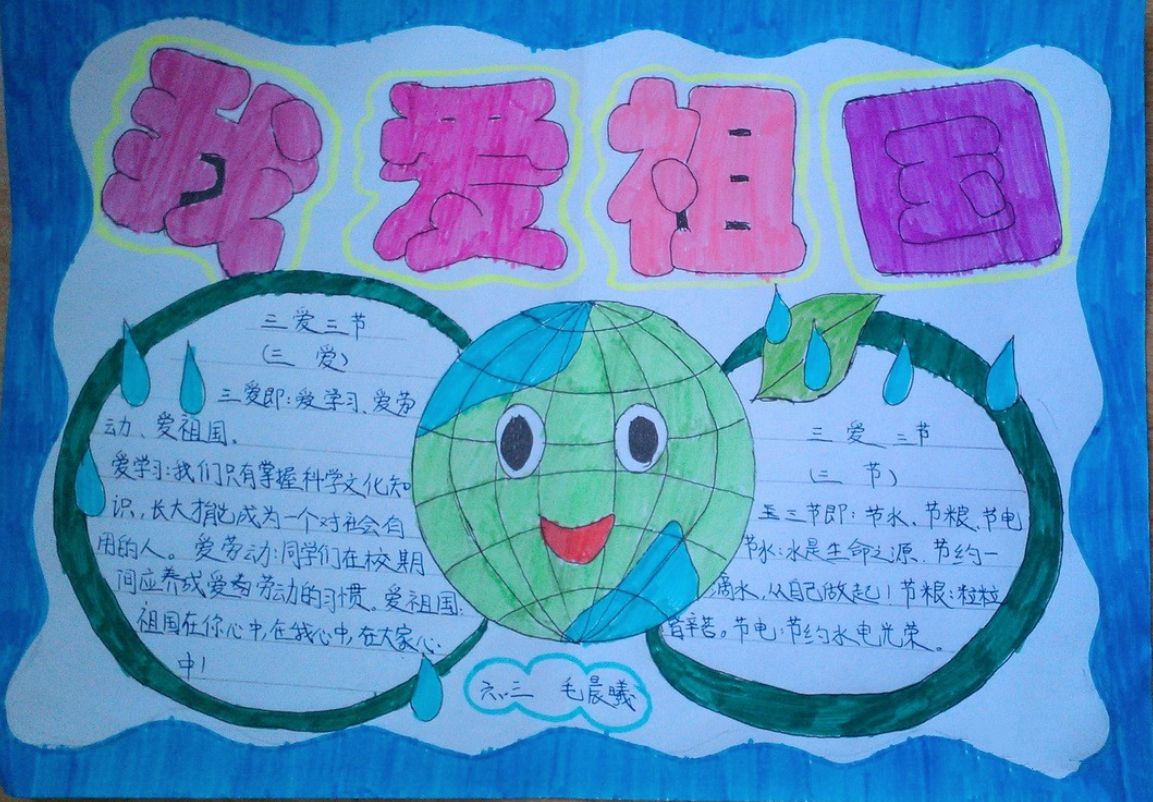 我爱祖国
三爱三节
(三 爱)
三爱即:爱学习、爱劳
动、爱祖国。
爱学习:我们只有掌握科学文化知
识,长大才能成为一个对社会有
用的人。爱劳动:同学们在校期
间应养成爱劳动的习惯。爱祖国:
祖国在你心中,在我心中,在大家心
中!
三爱三节
(三 节)
三节即:节水、节粮、节电
节水:水是生命之源.节约一
滴水,从自己做起!节粮:粒粒
皆辛苦。节电:节约水电光荣。
六.三 毛晨曦